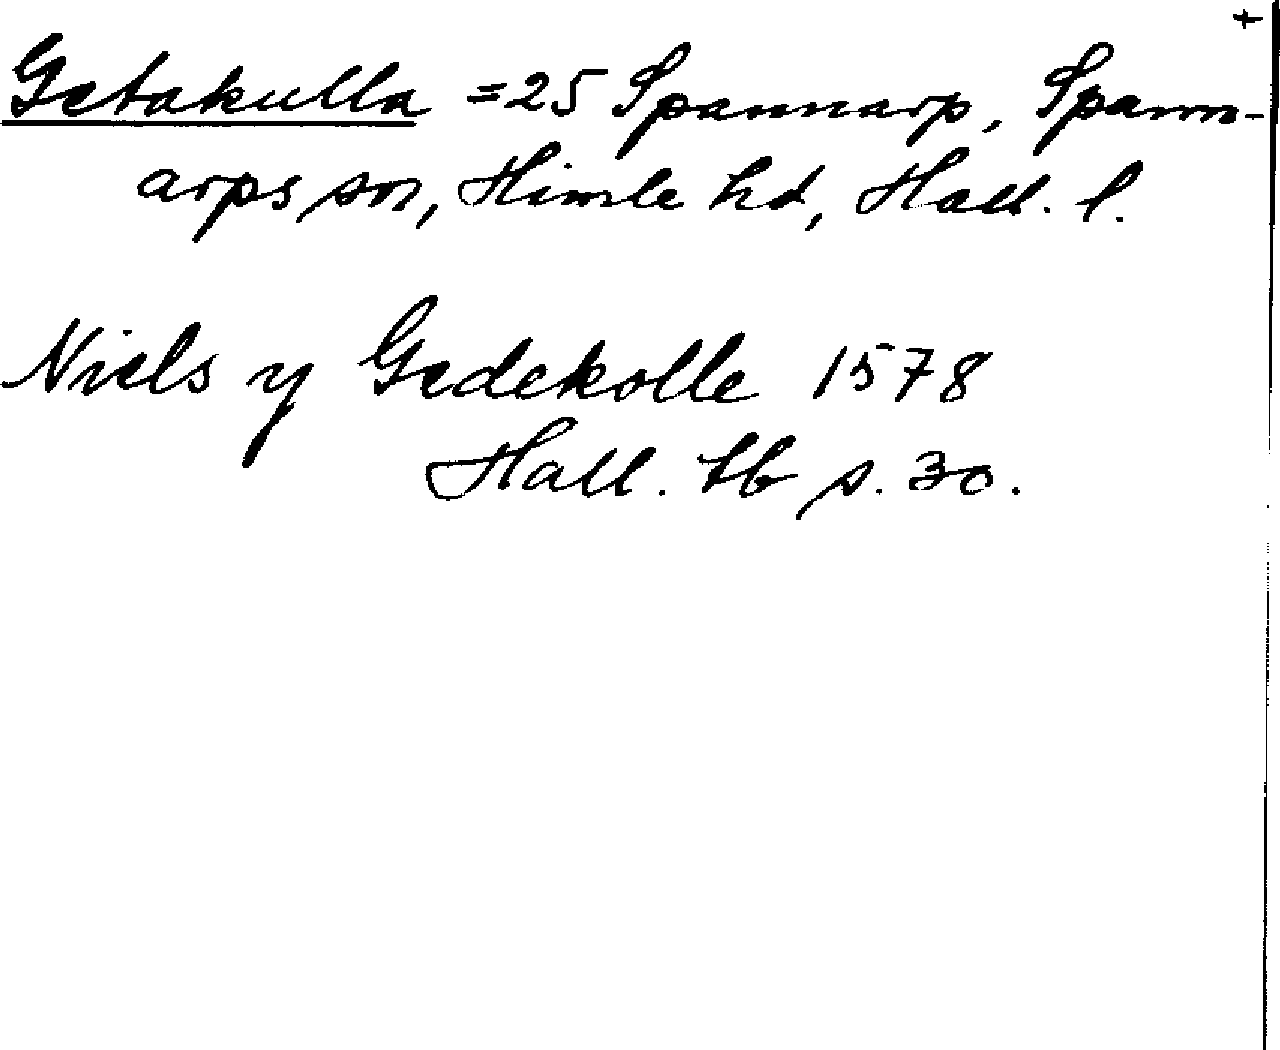 +
Getakulla = 25 Spannarp, Spann-
arps sn, Himle hd, Hall. l.
Niels y Gedekolle 1578
Hall. tb s. 30.